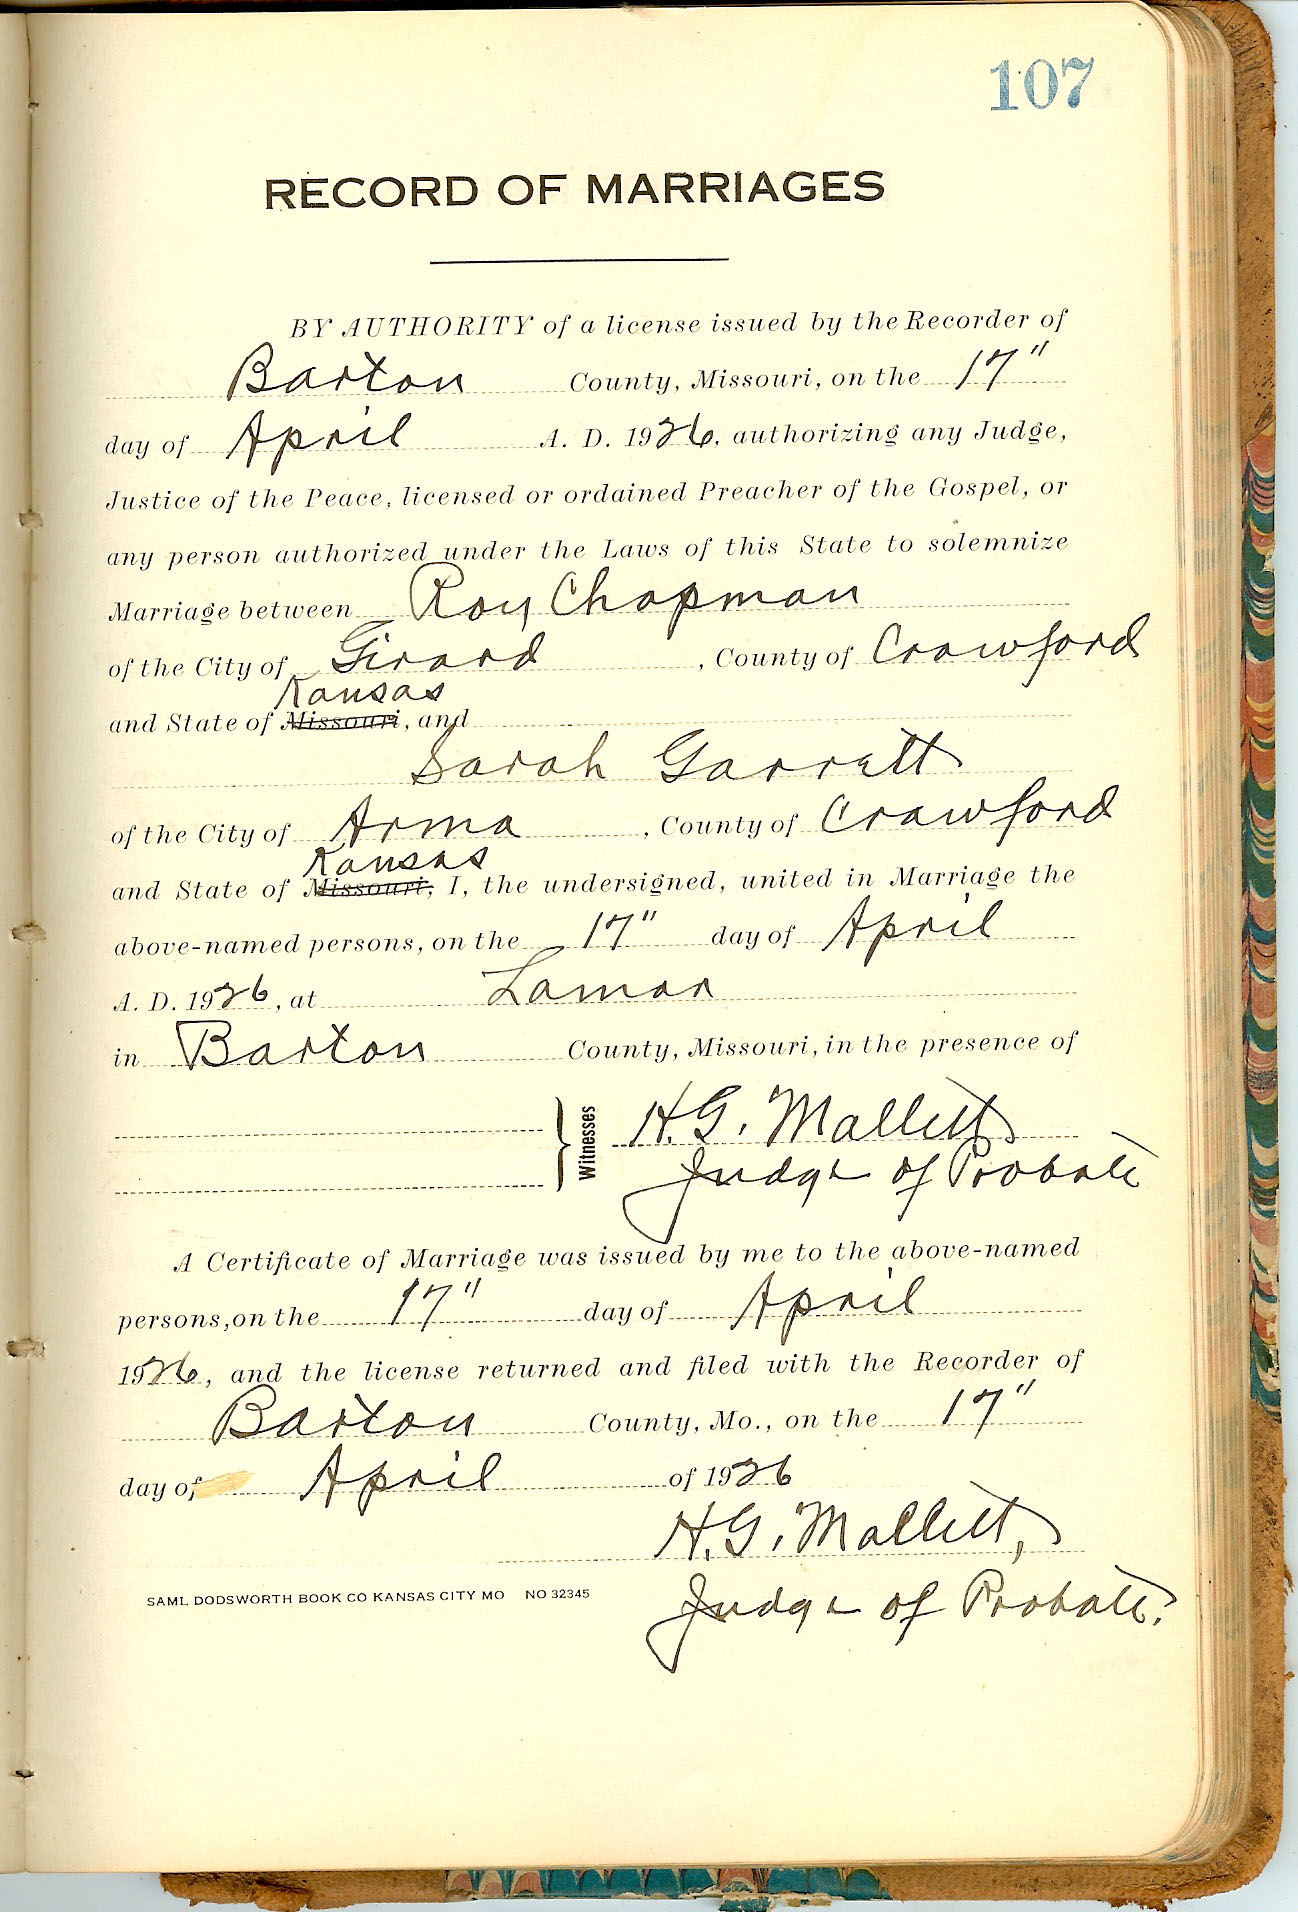 107
RECORD OF MARRIAGES
BY AUTHORITY of a license issued by the Recorder of
Barton County, Missouri, on the 17"
day of April A. D. 1926, authorizing any Judge,
Justice of the Peace, licensed or ordained Preacher of the Gospel, or
any person authorized under the Laws of this State to solemnize
Marriage between Roy Chapman
of the City of Girard, County of Crawford
Kansas
and State of Missouri, and
Sarah Garrett
of the City of Arma, County of Crawford
Kansas
and State of Missouri, I, the undersigned, united in Marriage the
above-named persons, on the 17" day of April
A. D. 1926, at Lamar
in Barton County, Missouri, in the presence of
Witnesses H. G. Mallett
Judge of Probate
A Certificate of Marriage was issued by me to the above-named
persons, on the 17" day of April
1926, and the license returned and filed with the Recorder of
Barton County, Mo., on the 17"
day of April of 1926
H. G. Mallett,
SAML DODSWORTH BOOK CO KANSAS CITY MO NO 32345
Judge of Probate.